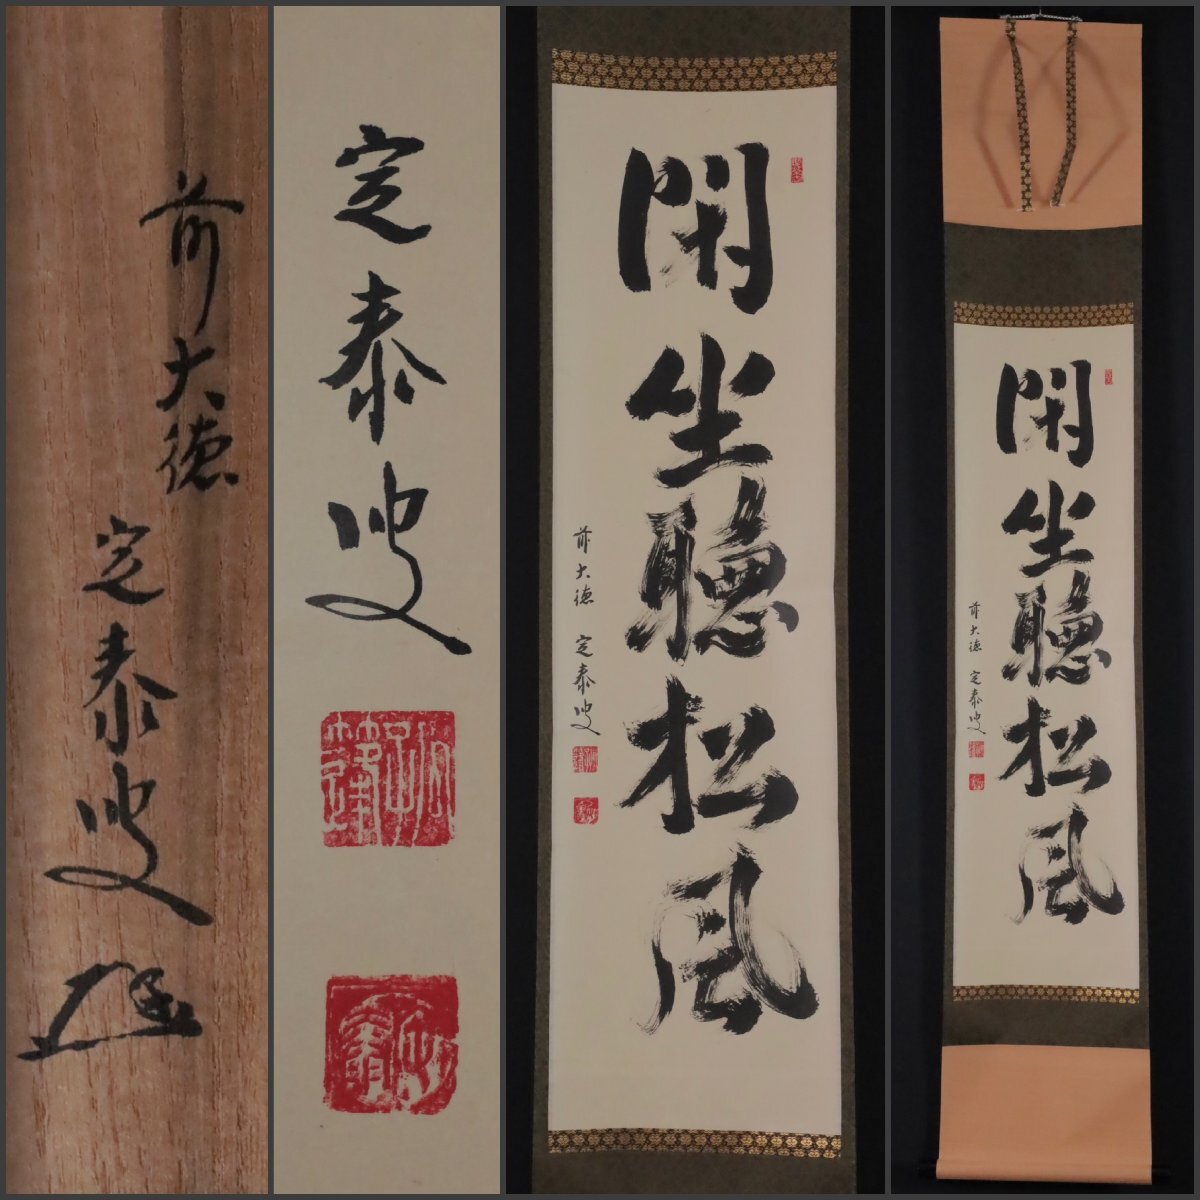 前大徳
定泰叟
定泰叟
閑坐聴松風
前大徳 定泰叟
閑坐聴松風
前大徳 定泰叟